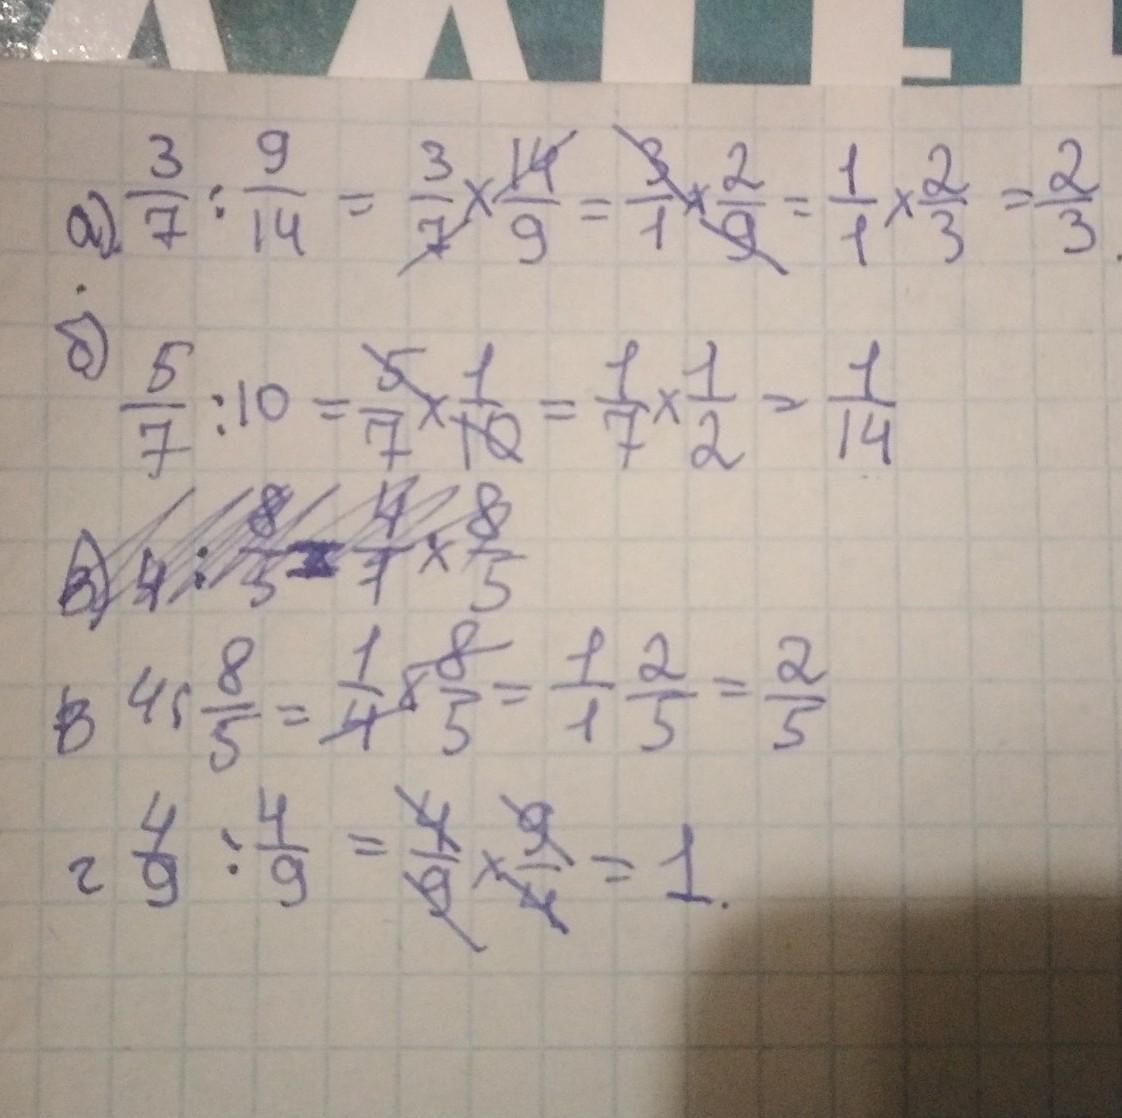 а) 3/7 : 9/14 = 3/7 × 14/9 = 3/1 × 2/9 = 1/1 × 2/3 = 2/3.
б) 5/7 : 10 = 5/7 × 1/10 = 1/7 × 1/2 = 1/14
в) 4 : 8/5 = 4/1 × 8/5
в 4 : 8/5 = 1/4 × 8/5 = 1/1 2/5 = 2/5
г 4/9 : 4/9 = 4/9 × 9/4 = 1.